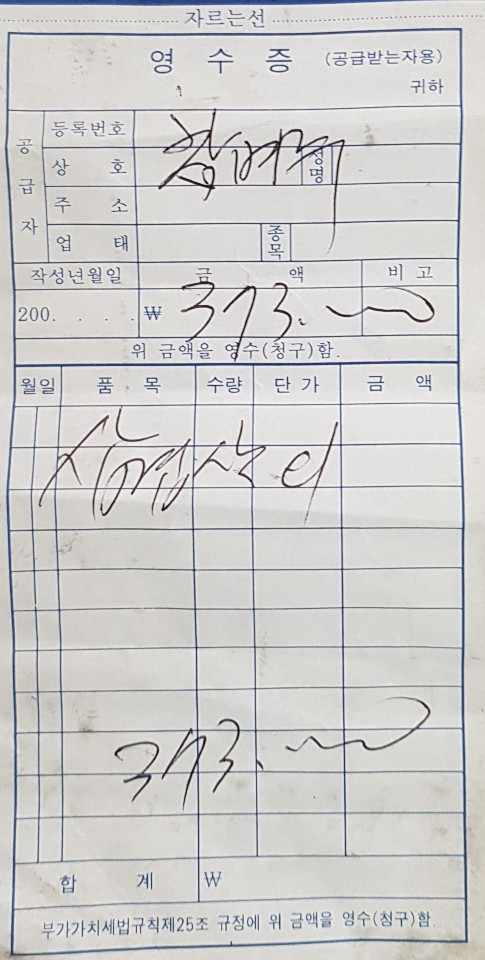 자르는선
영 수 증 (공급받는자용)
귀하
공급자
등록번호
상 호 성명
주 소
업 태 종목
작성년월일 금 액 비 고
200. . . . ₩ 373.
위 금액을 영수(청구)함.
월일 품 목 수량 단 가 금 액
373.
합 계 ₩
부가가치세법규칙제25조 규정에 위 금액을 영수(청구)함.